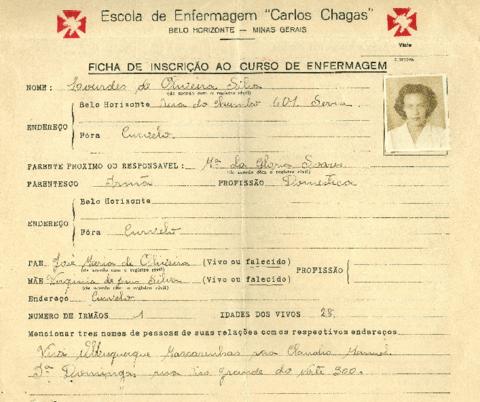 Escola de Enfermagem "Carlos Chagas"
BELO HORIZONTE — MINAS GERAIS
Visto
FICHA DE INSCRIÇÃO AO CURSO DE ENFERMAGEM
NOME: Lourdes de Oliveira Silva
(de acordo com o registro civil)
ENDEREÇO
Belo Horizonte rua do Chumbo 401. Serra
Fóra Curvelo
PARENTE PROXIMO OU RESPONSAVEL: Mª da Gloria Soares
(de acordo com o registro civil)
PARENTESCO Irmã PROFISSÃO Domestica
ENDEREÇO
Belo Horizonte
Fóra Curvelo
PAE José Maria de Oliveira (Vivo ou falecido)
(de acordo com o registro civil)
PROFISSÃO
MÃE Virginia de Silva (Vivo ou falecido)
(de acordo com o registro civil)
Endereço Curvelo
NUMERO DE IRMÃOS 1 IDADES DOS VIVOS 28
Mencionar tres nomes de pessoas de suas relações com os respectivos endereços
Albuquerque Mascarenhas rua Claudio Manuel
Domingas rua rio Grande do Norte 300.